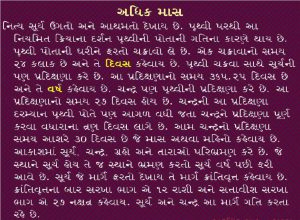 અધિક માસ
નિત્ય સૂર્ય ઉગતો અને આથમતો દેખાય છે. પૃથ્વી પરથી આ
નિયમિત ક્રિયાના દર્શન પૃથ્વીની પોતાની ગતિના કારણે થાય છે.
પૃથ્વી પોતાની ધરીને ફરતો ચક્રાવો લે છે. એક ચક્રાવાનો સમય
૨૪ કલાક છે અને તે દિવસ કહેવાય છે. પૃથ્વી ચક્રાવા સાથે સૂર્યની
પણ પ્રદક્ષિણા કરે છે. આ પ્રદક્ષિણાનો સમય ૩૬૫.૨૫ દિવસ છે
અને તે વર્ષ કહેવાય છે. ચન્દ્ર પણ પૃથ્વીની પ્રદક્ષિણા કરે છે. આ
પ્રદક્ષિણાનો સમય ૨૭ દિવસ હોય છે. ચન્દ્રની આ પ્રદક્ષિણા
દરમ્યાન પૃથ્વી પોતે પણ આગળ વધી જતા ચન્દ્રને પ્રદક્ષિણા પૂર્ણ
કરવા વધારાના ત્રણ દિવસ લાગે છે. આમ ચન્દ્રનો પ્રદક્ષિણા
સમય આશરે ૩૦ દિવસ છે જે માસ અથવા મહિનો કહેવાય છે.
આકાશમાં સૂર્ય, ચન્દ્ર, ગ્રહો અને તારાઓ પરિભ્રમણ કરે છે. જે
સ્થાને સૂર્ય હોય તે જ સ્થાને ભ્રમણ કરતો સૂર્ય વર્ષ પછી ફરી
આવે છે. સૂર્ય જે માર્ગે ફરતો દેખાય તે માર્ગ ક્રાંતિવૃત્ત કહેવાય છે.
ક્રાંતિવૃત્તના બાર સરખા ભાગ એ ૧૨ રાશી અને સતાવીસ સરખા
ભાગ એ ૨૭ નક્ષત્ર કહેવાય. સૂર્ય અને ચન્દ્ર આ માર્ગે ગતિ કરતા
રહે છે.